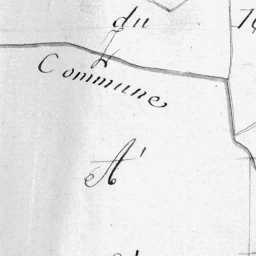 du
Commune
A'